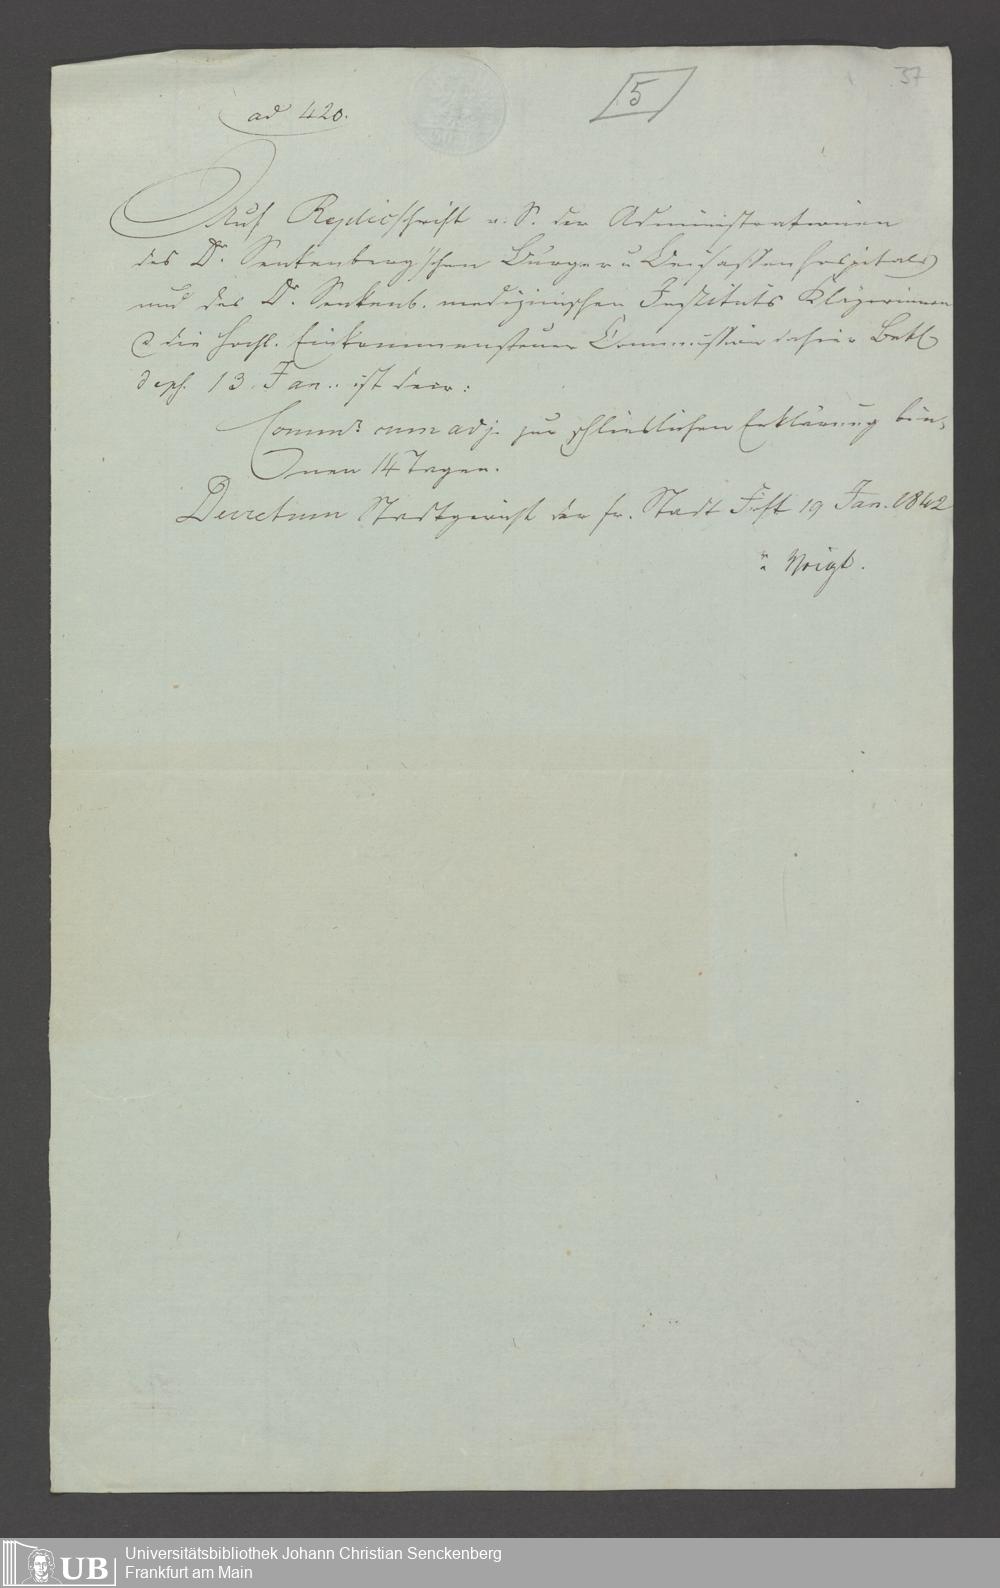 37
5
ad 420.
Auf Replicschrift v. S. der Administrationen
des Dr. Senkenberg'schen Burger u Beisassenhospitals
und des Dr. Senkenb. medizinischen Instituts Klägerinnen
die hochl. Einkommensteuer Commission dahier Bekl
13. Jan. ist decr:
Commr. cum adj. zur schließlichen Erklärung bin-
nen 14 Tagen.
Decretum Stadtgericht der fr. Stadt Fft 19 Jan. 1842
Voigt.
Universitätsbibliothek Johann Christian Senckenberg
Frankfurt am Main
UB